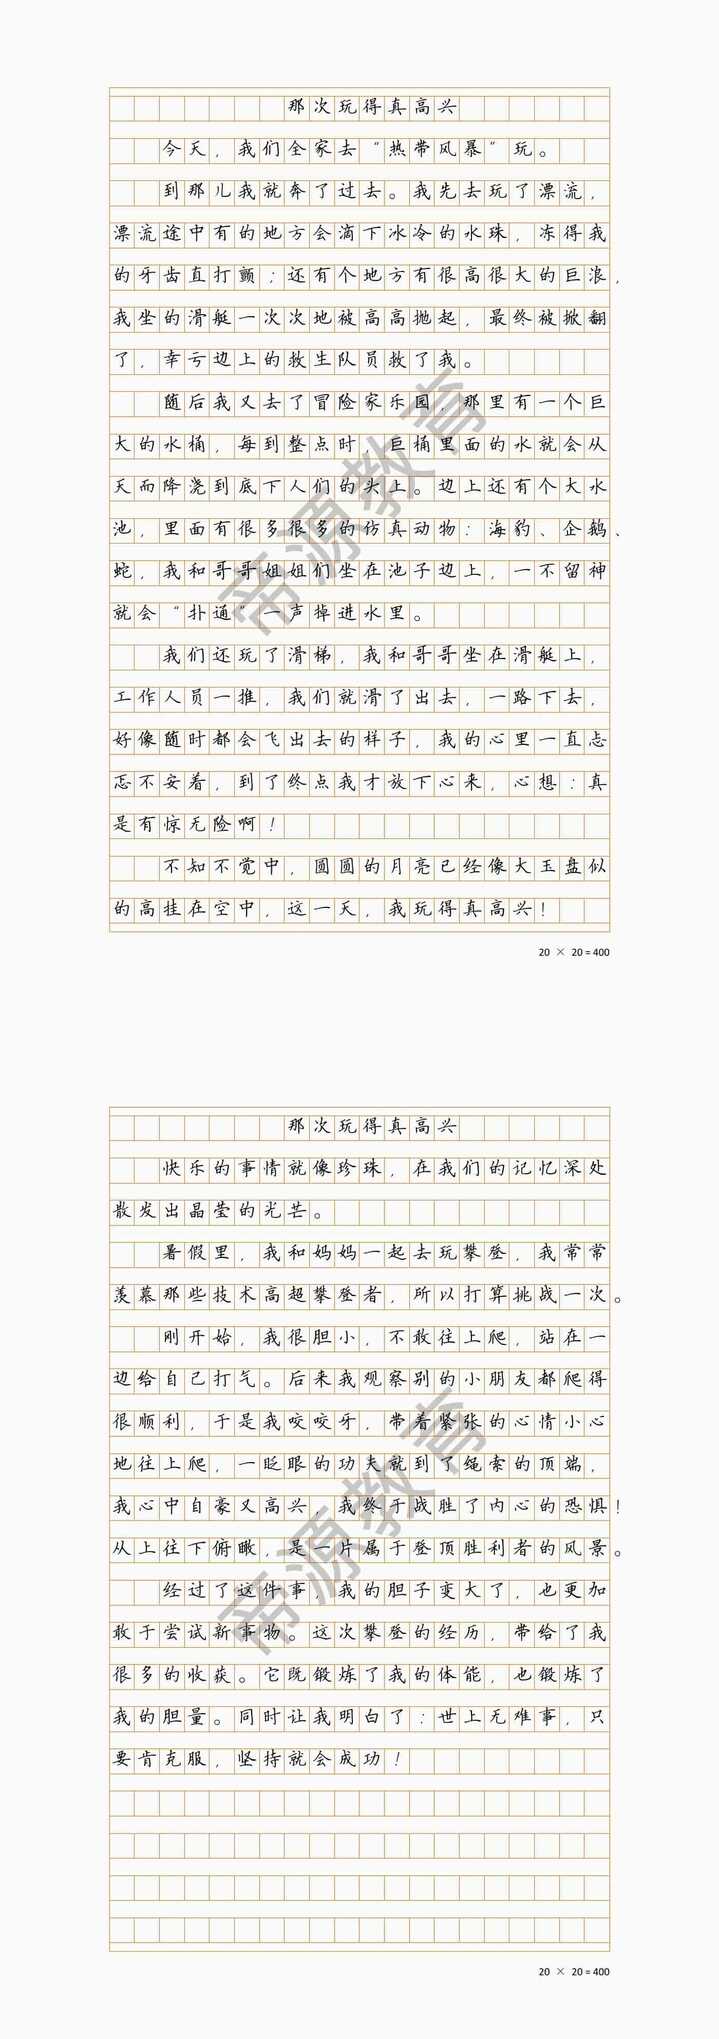 那次玩得真高兴
今天，我们全家去“热带风暴”玩。
到那儿我就奔了过去。我先去玩了漂流，
漂流途中有的地方会滴下冰冷的水珠，冻得我
的牙齿直打颤；还有个地方有很高很大的巨浪，
我坐的滑艇一次次地被高高抛起，最终被掀翻
了，幸亏边上的救生队员救了我。
随后我又去了冒险家乐园，那里有一个巨
大的水桶，每到整点时，巨桶里面的水就会从
天而降浇到底下人们的头上。边上还有个大水
池，里面有很多很多的仿真动物：海豹、企鹅、
蛇，我和哥哥姐姐们坐在池子边上，一不留神
就会“扑通”一声掉进水里。
我们还玩了滑梯，我和哥哥坐在滑艇上，
工作人员一推，我们就滑了出去，一路下去，
好像随时都会飞出去的样子，我的心里一直忐
忑不安着，到了终点我才放下心来，心想：真
是有惊无险啊！
不知不觉中，圆圆的月亮已经像大玉盘似
的高挂在空中，这一天，我玩得真高兴！
20 × 20 = 400
那次玩得真高兴
快乐的事情就像珍珠，在我们的记忆深处
散发出晶莹的光芒。
暑假里，我和妈妈一起去玩攀登，我常常
羡慕那些技术高超攀登者，所以打算挑战一次。
刚开始，我很胆小，不敢往上爬，站在一
边给自己打气。后来我观察别的小朋友都爬得
很顺利，于是我咬咬牙，带着紧张的心情小心
地往上爬，一眨眼的功夫就到了绳索的顶端，
我心中自豪又高兴，我终于战胜了内心的恐惧！
从上往下俯瞰，是一片属于登顶胜利者的风景。
经过了这件事，我的胆子变大了，也更加
敢于尝试新事物。这次攀登的经历，带给了我
很多的收获。它既锻炼了我的体能，也锻炼了
我的胆量。同时让我明白了：世上无难事，只
要肯克服，坚持就会成功！
20 × 20 = 400
帝源教育
帝源教育